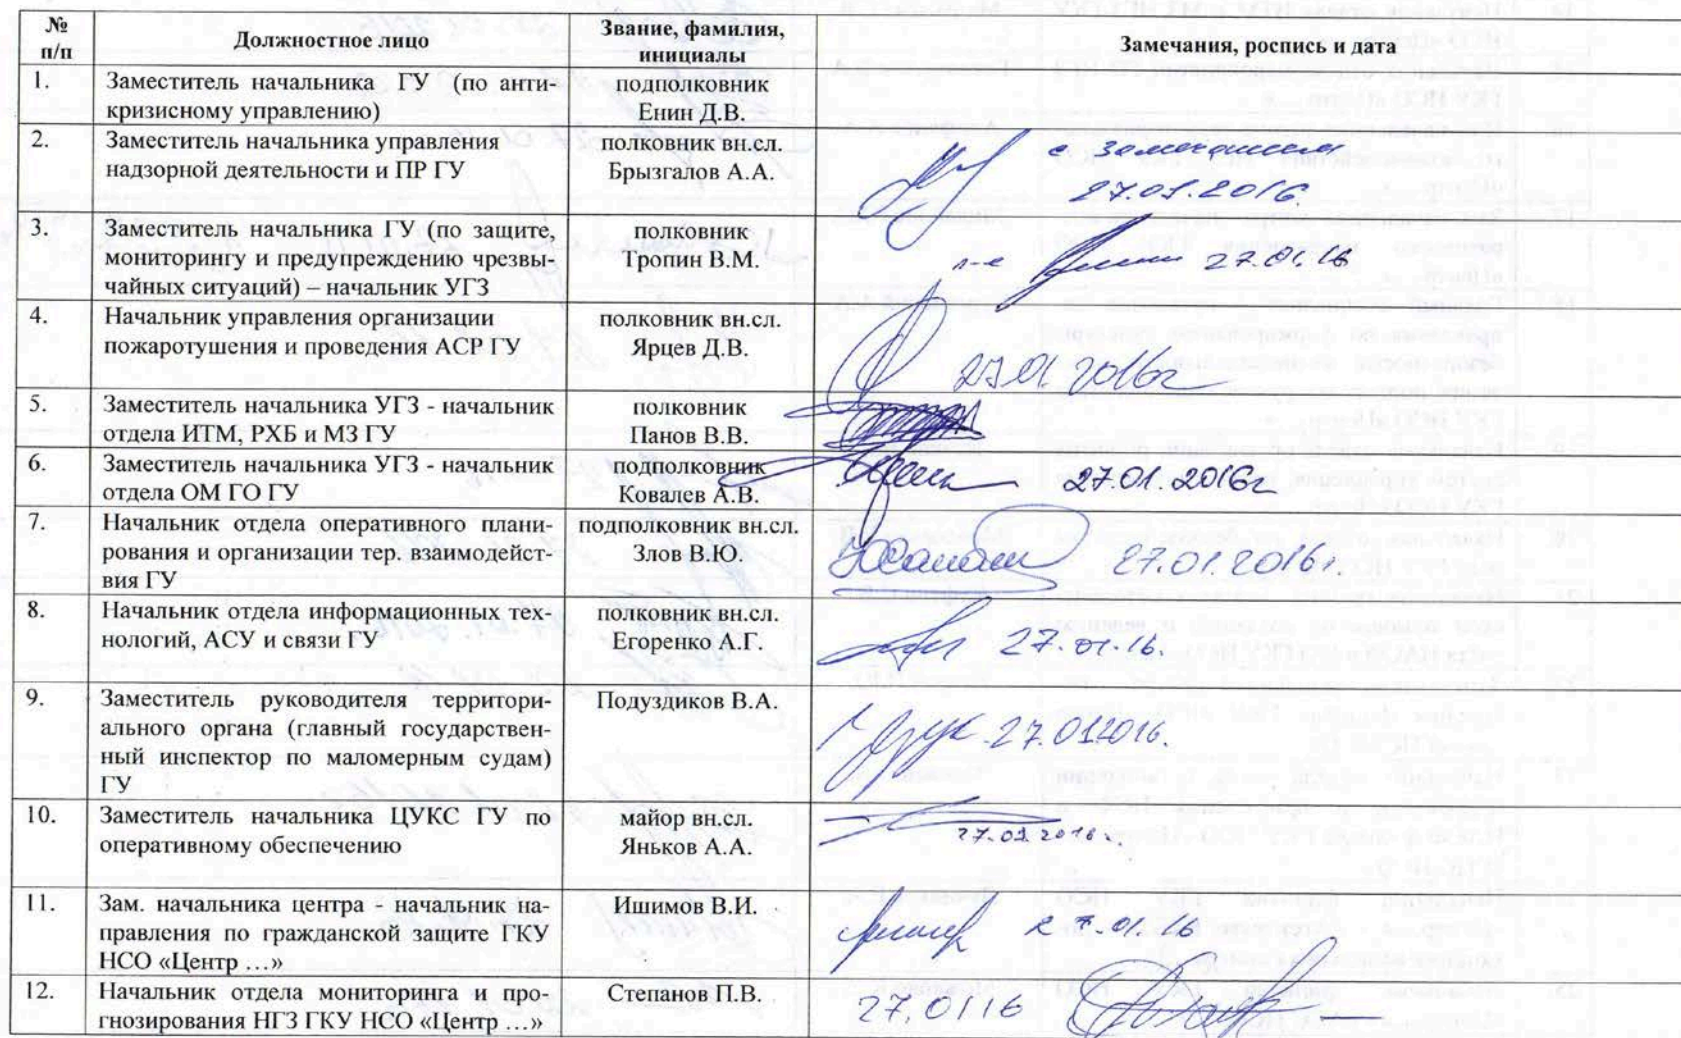 № п/п
Должностное лицо
Звание, фамилия, инициалы
Замечания, роспись и дата
1.
Заместитель начальника ГУ (по анти-
кризисному управлению)
подполковник
Енин Д.В.
2.
Заместитель начальника управления
надзорной деятельности и ПР ГУ
полковник вн.сл.
Брызгалов А.А.
с замечанием
27.01.2016.
3.
Заместитель начальника ГУ (по защите,
мониторингу и предупреждению чрезвы-
чайных ситуаций) – начальник УГЗ
полковник
Тропин В.М.
27.01.16
4.
Начальник управления организации
пожаротушения и проведения АСР ГУ
полковник вн.сл.
Ярцев Д.В.
27.01.2016г
5.
Заместитель начальника УГЗ - начальник
отдела ИТМ, РХБ и МЗ ГУ
полковник
Панов В.В.
6.
Заместитель начальника УГЗ - начальник
отдела ОМ ГО ГУ
подполковник
Ковалев А.В.
27.01.2016г
7.
Начальник отдела оперативного плани-
рования и организации тер. взаимодейст-
вия ГУ
подполковник вн.сл.
Злов В.Ю.
27.01.2016г.
8.
Начальник отдела информационных тех-
нологий, АСУ и связи ГУ
полковник вн.сл.
Егоренко А.Г.
27.01.16.
9.
Заместитель руководителя территори-
ального органа (главный государствен-
ный инспектор по маломерным судам)
ГУ
Подуздиков В.А.
27.012016.
10.
Заместитель начальника ЦУКС ГУ по
оперативному обеспечению
майор вн.сл.
Яньков А.А.
27.01.2016г.
11.
Зам. начальника центра - начальник на-
правления по гражданской защите ГКУ
НСО «Центр ...»
Ишимов В.И.
27.01.16
12.
Начальник отдела мониторинга и про-
гнозирования НГЗ ГКУ НСО «Центр ...»
Степанов П.В.
27.01.16